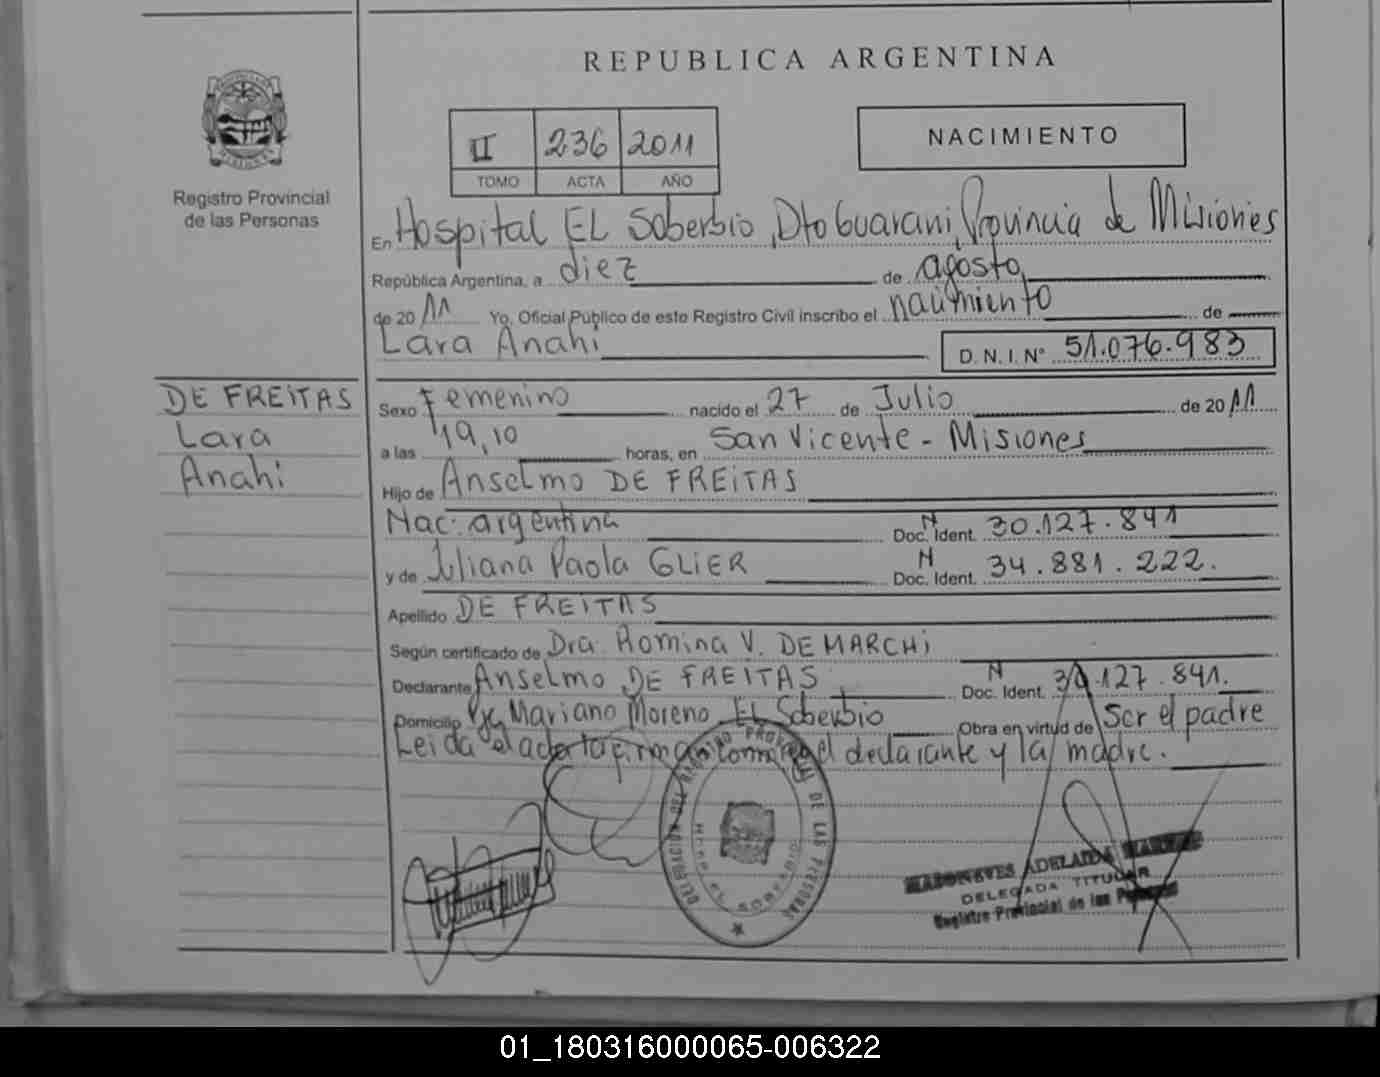 REPUBLICA ARGENTINA
II 236 2011
TOMO ACTA AÑO
NACIMIENTO
Registro Provincial
de las Personas
En Hospital EL Soberbio, Dto Guarani, Provincia de Misiones
República Argentina, a diez de agosto
de 2011 Yo, Oficial Público de este Registro Civil inscribo el nacimiento de
Lara Anahi D.N.I. N° 51.076.983
DE FREITAS
Lara
Anahi
Sexo Femenino nacido el 27 de Julio de 2011
a las 19,10 horas, en San Vicente - Misiones
Hijo de Anselmo DE FREITAS
Nac: argentina Doc. Ident. N 30.127.841
y de Juliana Paola GLIER Doc. Ident. N 34.881.222.
Apellido DE FREITAS
Según certificado de Dra. Romina V. DE MARCHI
Declarante Anselmo DE FREITAS Doc. Ident. N 30.127.841.
Domicilio Mariano Moreno EL Soberbio Obra en virtud de Ser el padre
Leida el acta firma el declarante y la madre.
DELEGACION DEL REGISTRO PROVINCIAL DE LAS PERSONAS
EL SOBERBIO
ADELAIDA
DELEGADA TITULAR
Registro Provincial de las Personas
01_180316000065-006322